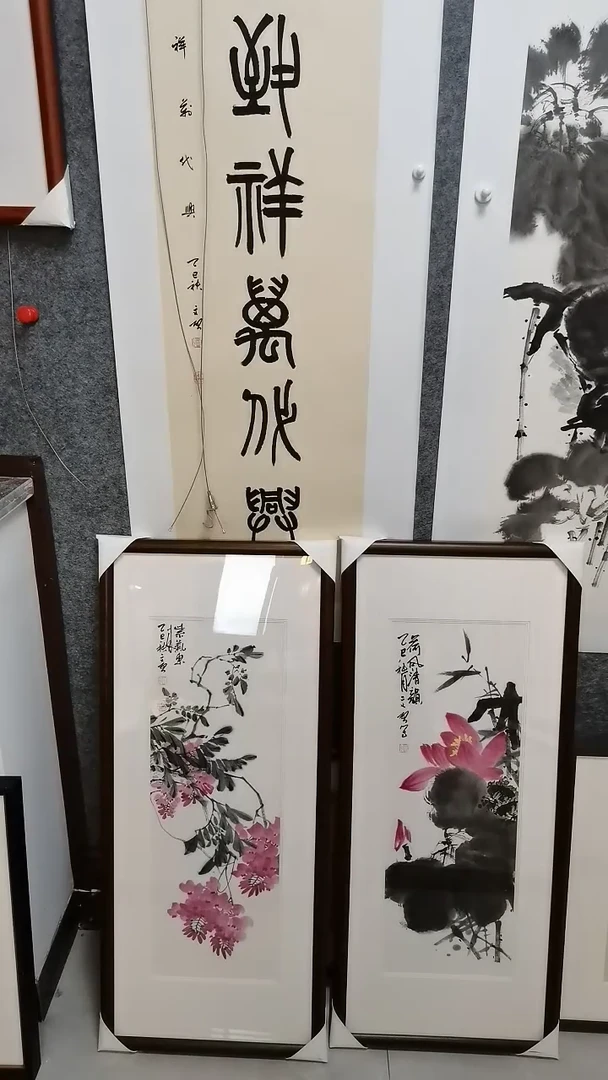 致祥萬代興
祥萬代興
乙巳秋
紫氣東
乙巳秋
荷風清韻
乙巳秋月